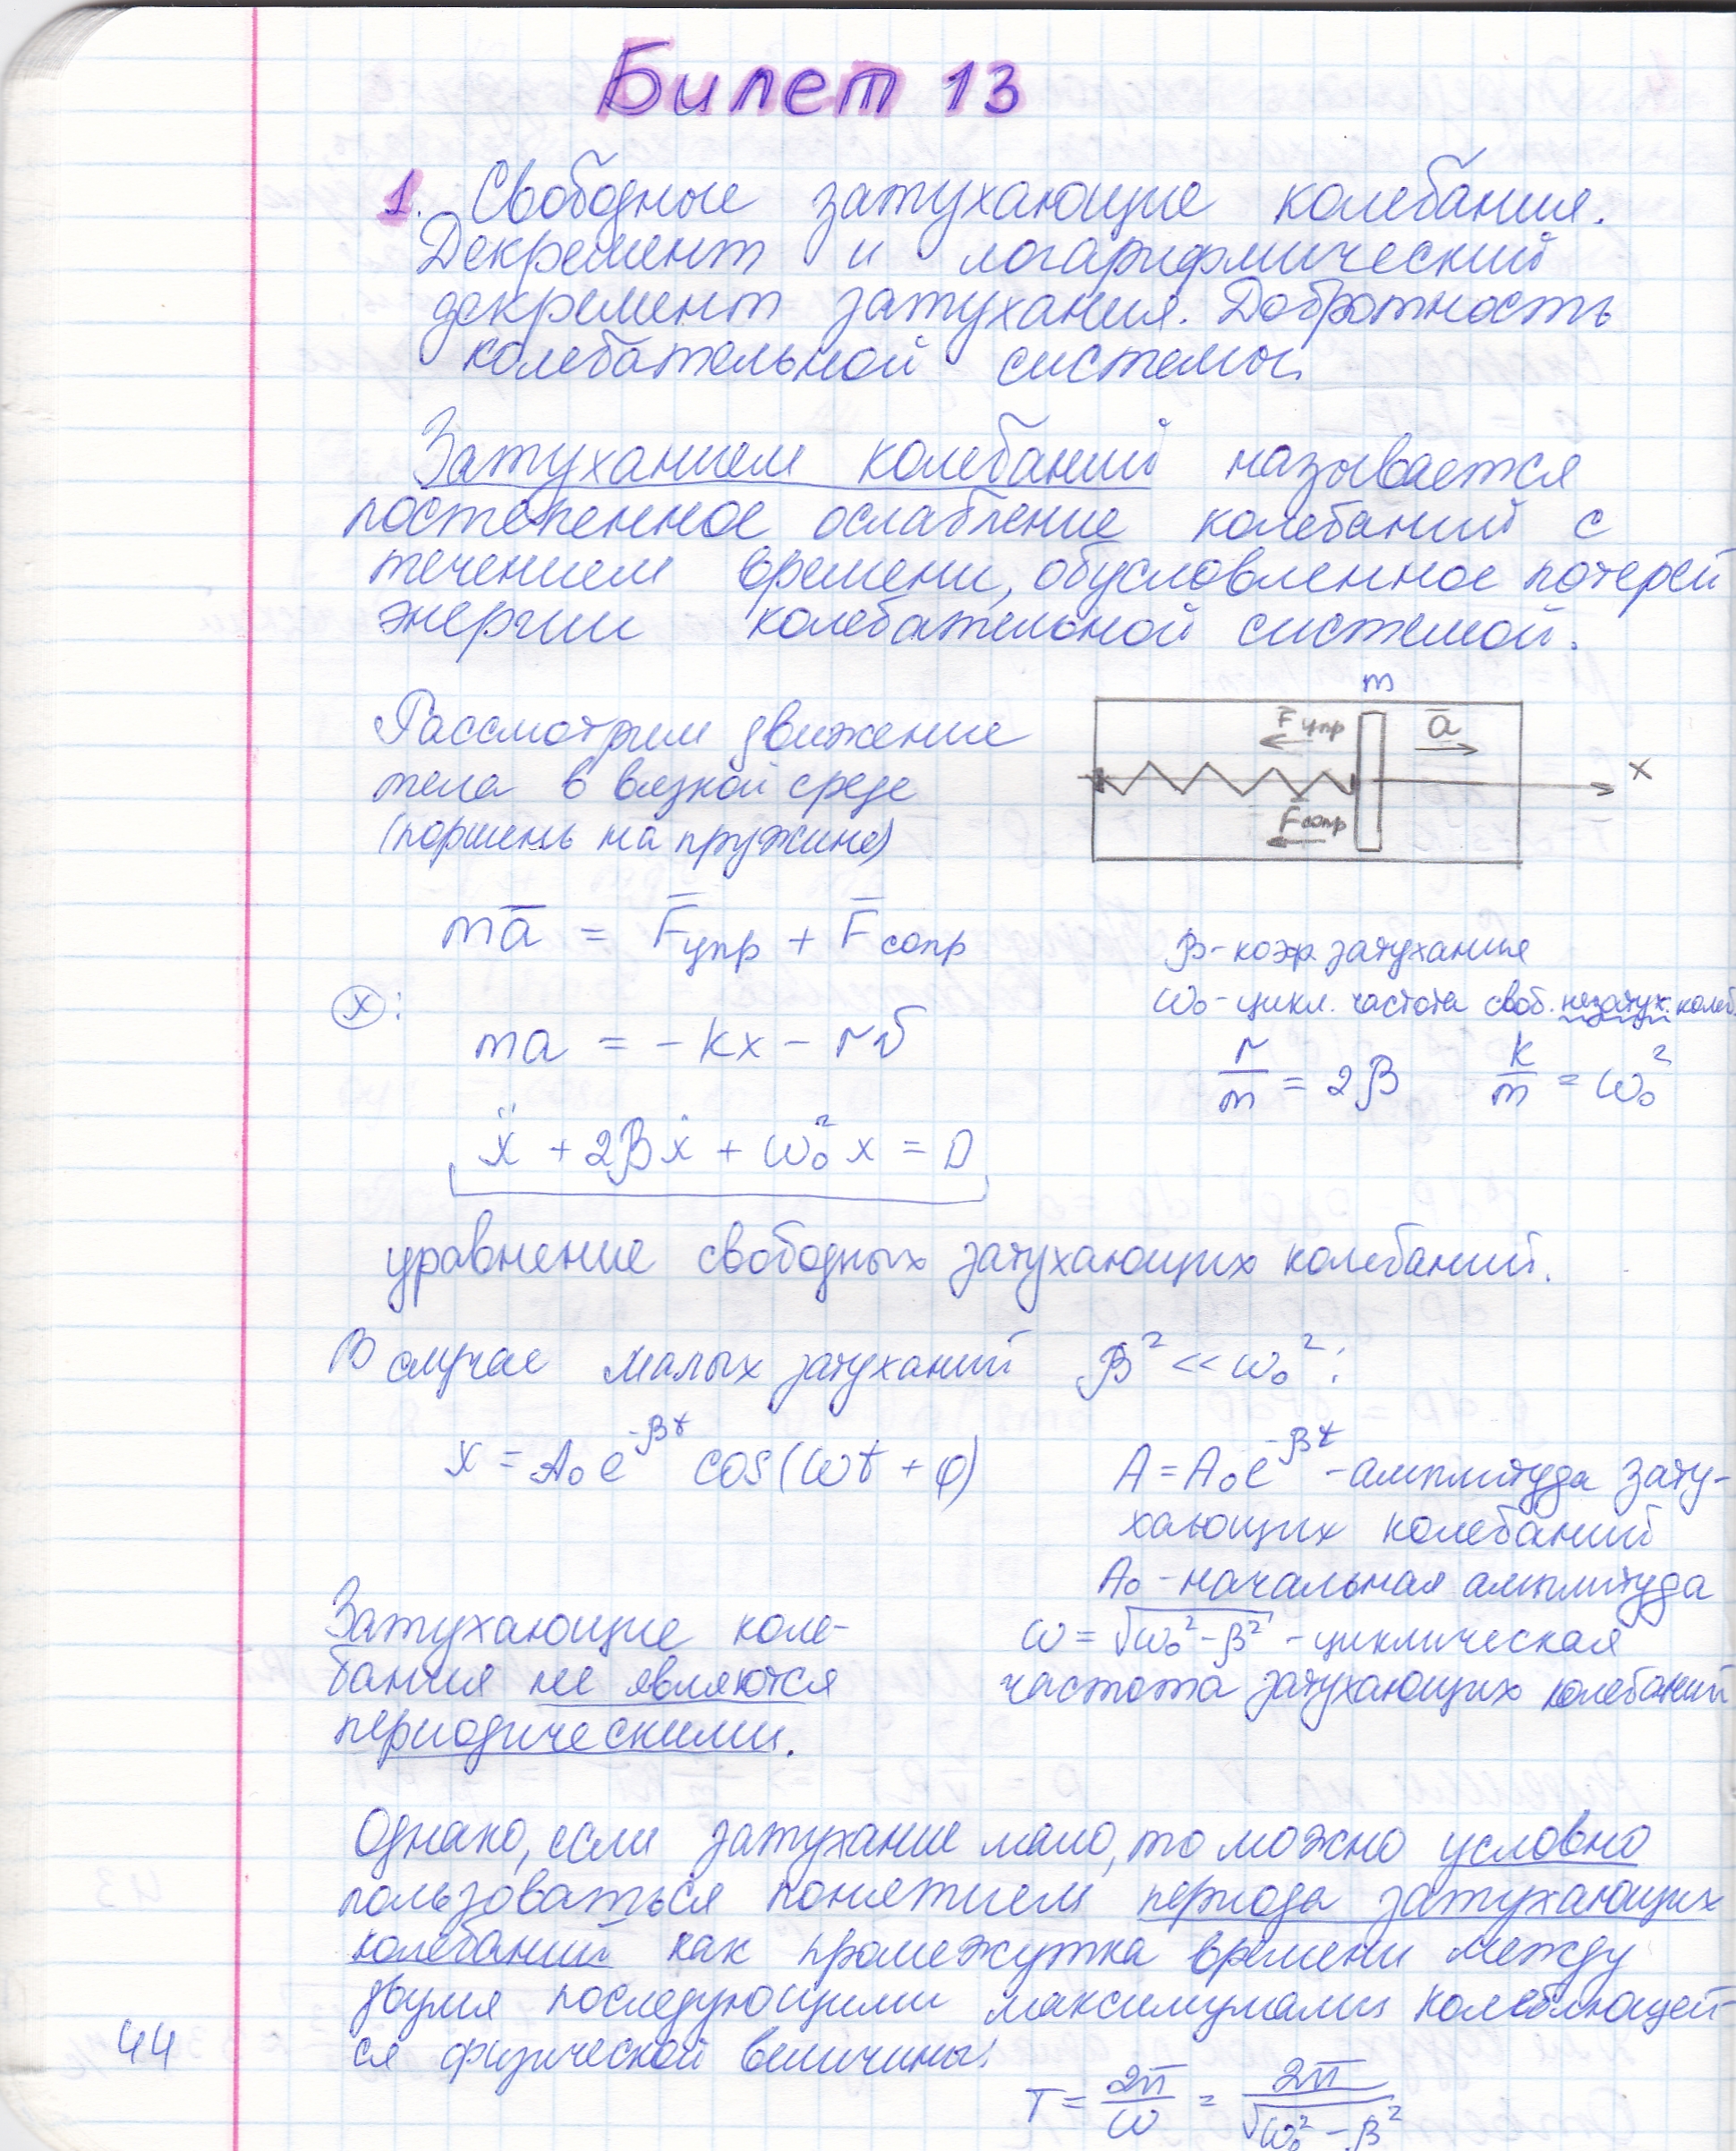 Билет 13
1. Свободные затухающие колебания.
Декремент и логарифмический
декремент затухания. Добротность
колебательной системы.
Затуханием колебаний называется
постепенное ослабление колебаний с
течением времени, обусловленное потерей
энергии колебательной системой.
Рассмотрим движение
тела в вязкой среде
(поршень на пружине)
m
F̄упр
ā
x
F̄сопр
mā = F̄упр + F̄сопр
β - коэф. затухания
ω₀ - цикл. частота своб. незатух. колеб.
x:
ma = -kx - rv
r/m = 2β k/m = ω₀²
ẍ + 2βẋ + ω₀²x = 0
уравнение свободных затухающих колебаний.
В случае малых затуханий β² << ω₀²:
x = A₀e^(-βt) cos(ωt + φ)
A = A₀e^(-βt) - амплитуда зату-
хающих колебаний
A₀ - начальная амплитуда
ω = √(ω₀² - β²) - циклическая
частота затухающих колебаний
Затухающие коле-
бания не являются
периодическими.
Однако, если затухание мало, то можно условно
пользоваться понятием периода затухающих
колебаний как промежутка времени между
двумя последующими максимумами колеблющей-
ся физической величины:
T = 2π/ω = 2π/√(ω₀² - β²)
44